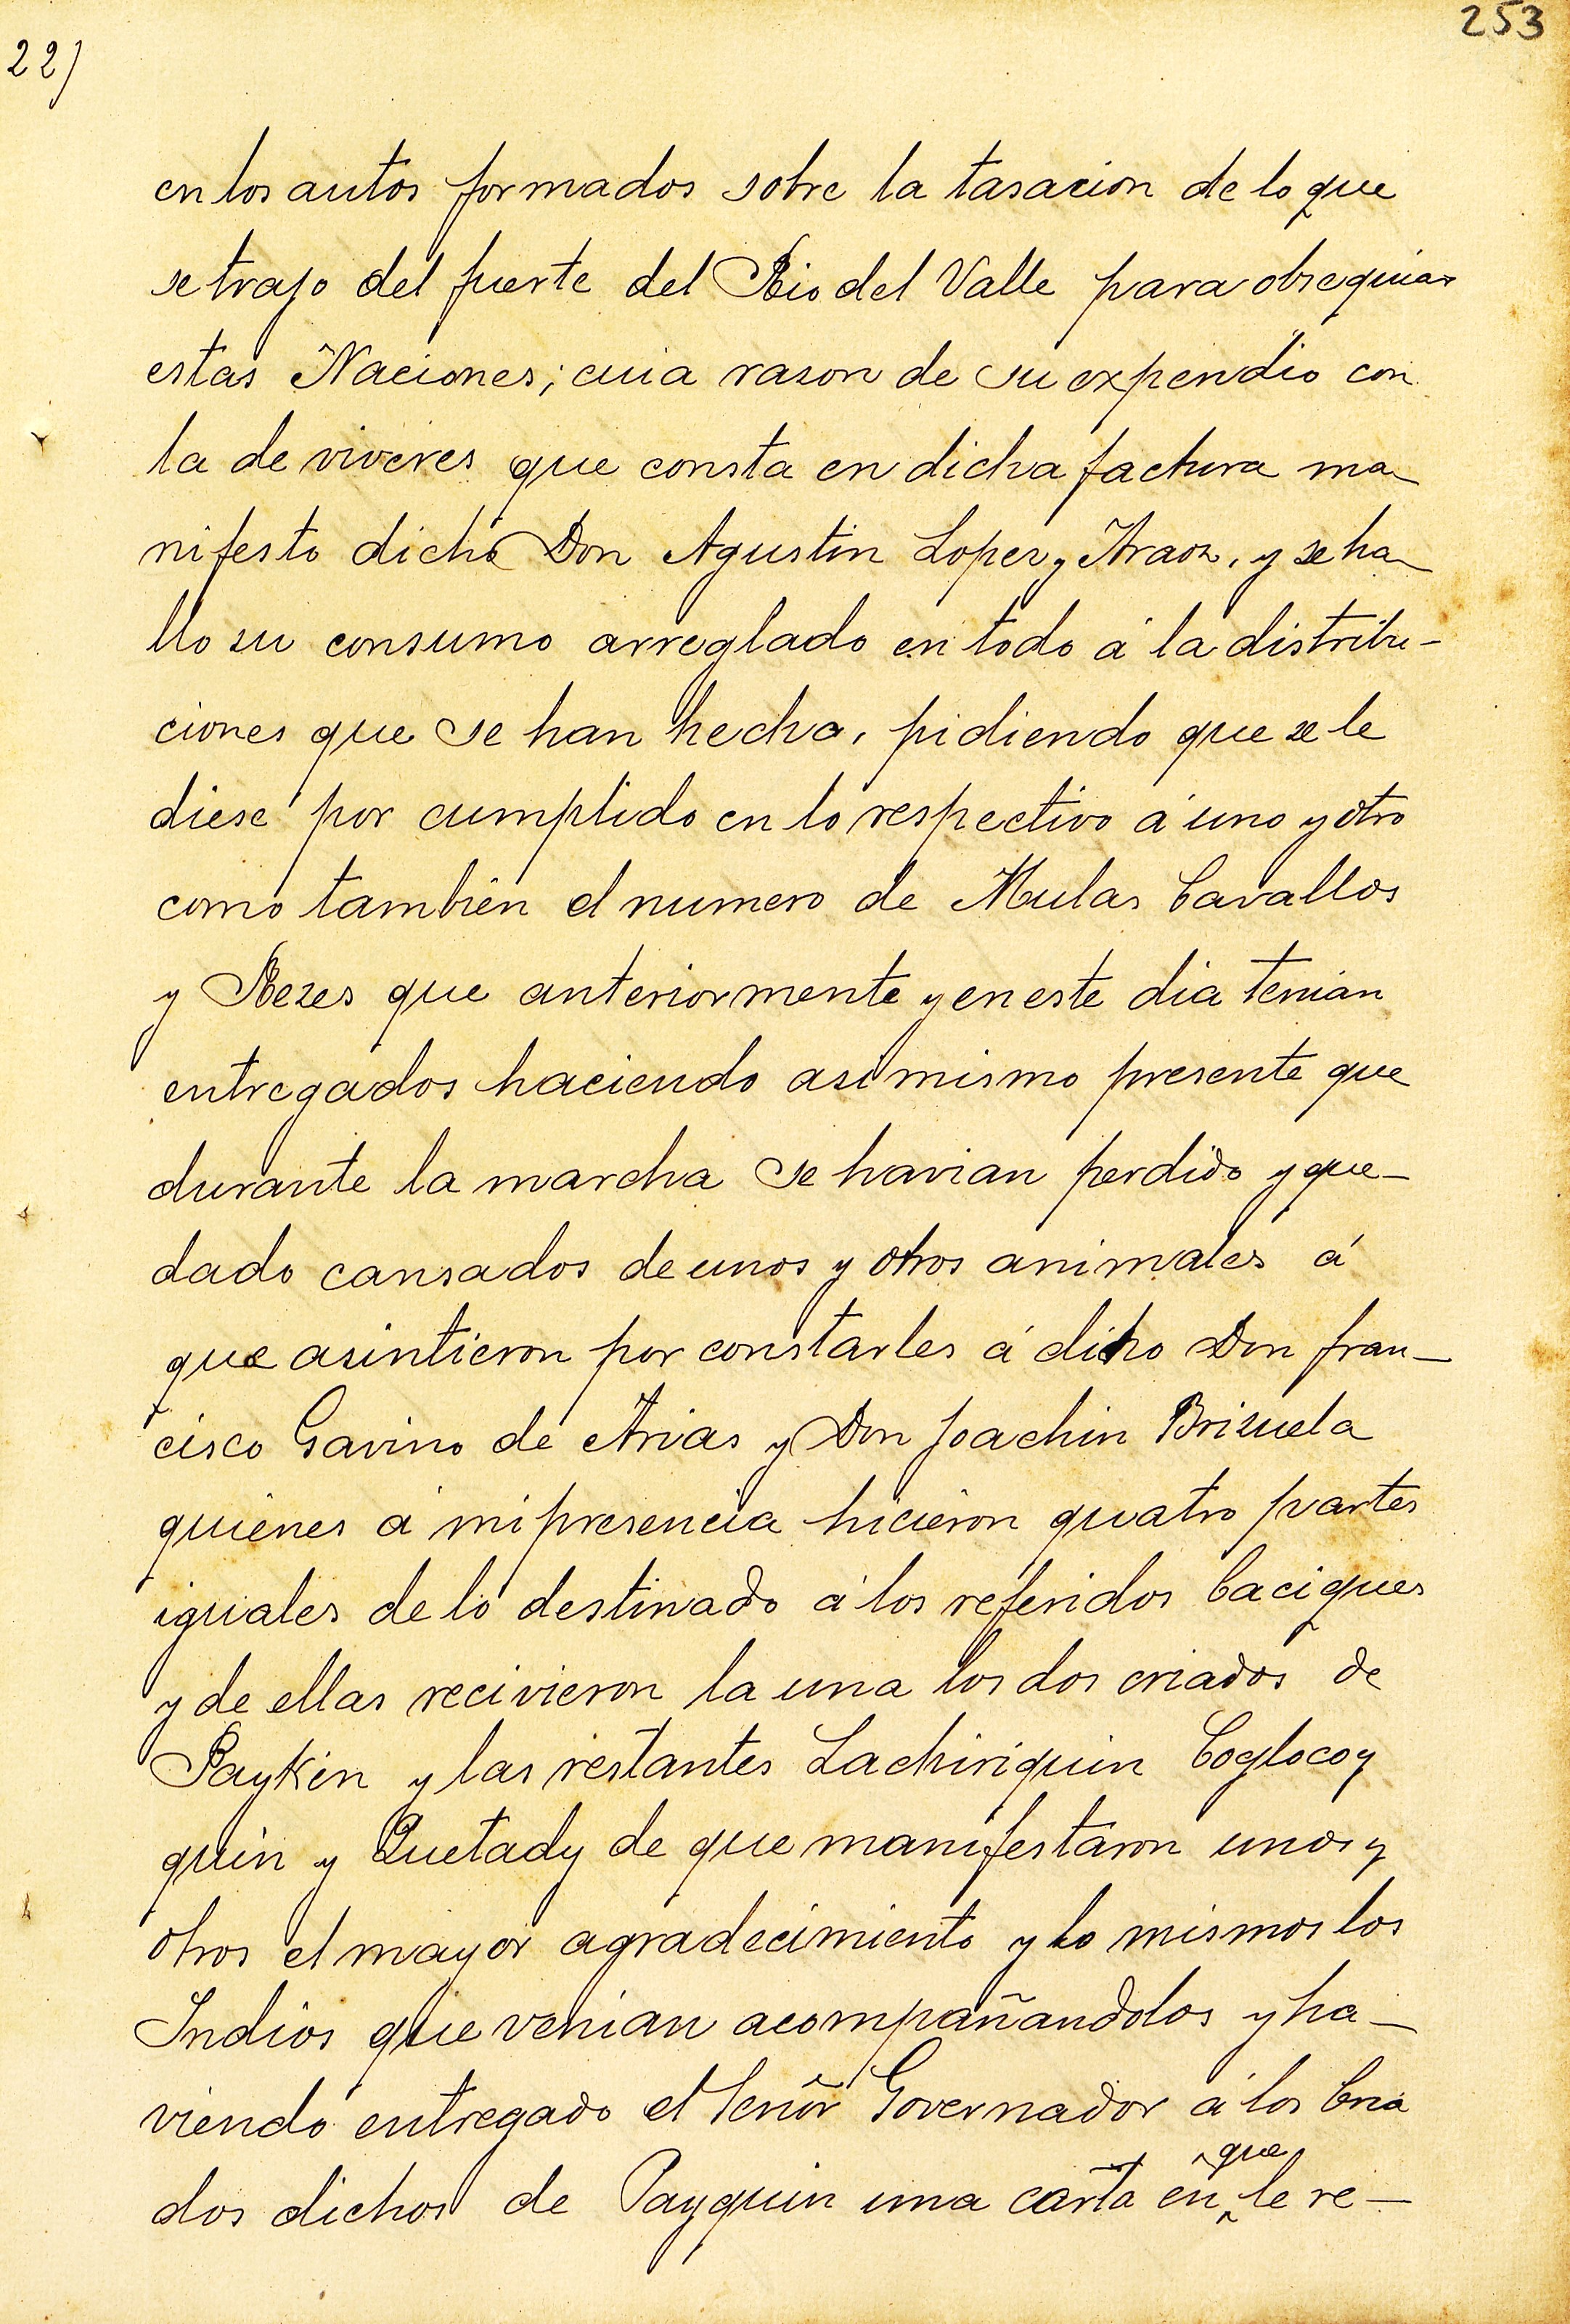 253
22)
en los autos formados sobre la tasacion de lo que
se trajo del fuerte del Rio del Valle para obsequiar
estas Naciones; cuia rason de su expendio con
la de viveres que consta en dicha factura ma_
nifesto dicho Don Agustin Lopez y Araoz, y se ha_
llo su consumo arreglado en todo á la distribu-
ciones que se han hecho, pidiendo que se le
diese por cumplido en lo respectivo á uno y otro
como tambien el numero de Mulas Cavallos
y Rezes que anteriormente y en este dia tenian
entregados haciendo asi mismo presente que
durante la marcha se havian perdido y que_
dado cansados de unos y otros animales á
que asintieron por constarles á dicho Don fran_
cisco Gavino de Arias y Don Joachin Brizuela
quienes á mi presencia hicieron quatro partes
iguales de lo destinado á los referidos Caciques
y de ellas recivieron la una los dos criados de
Paykin y las restantes Lachiriquin Coglocoy
quin y Quetady de que manifestaron unos y
otros el mayor agradecimiento y lo mismos los
Indios que venian acompañandolos y ha_
viendo entregado el Señor Governador á los Cria
dos dichos de Payquin una carta en que le re_